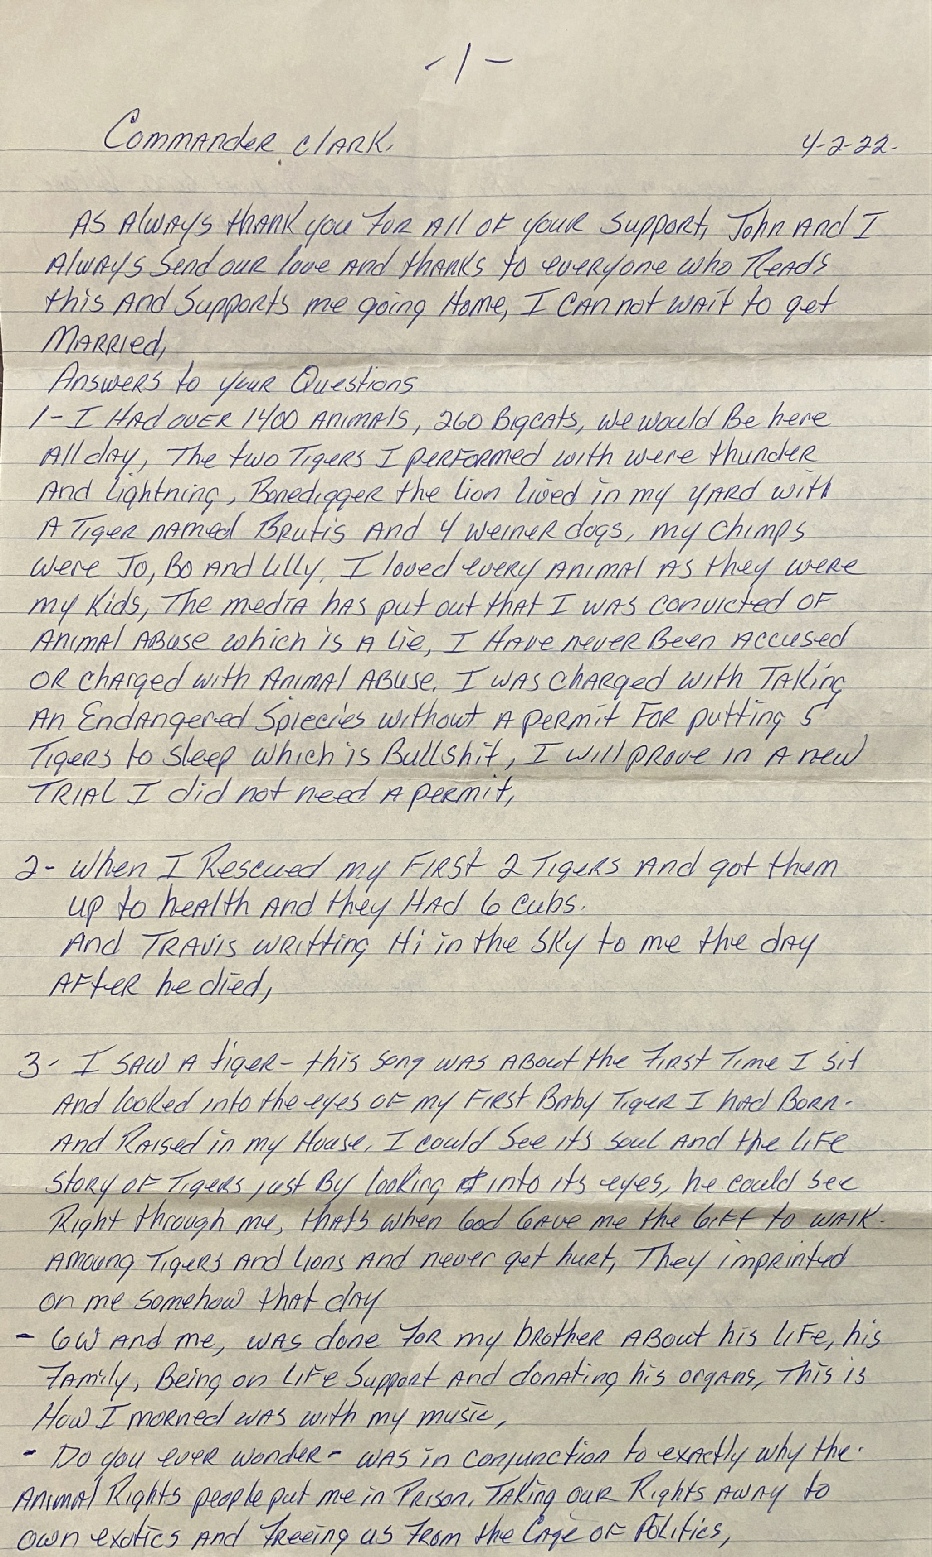 -1-
Commander Clark, 4-2-22-
As Always thank you For All of your Support, John And I
Always Send our love And thanks to everyone who Reads
this And Supports me going Home, I Can not wait to get
Married,
Answers to your Questions
1- I Had over 1400 Animals, 260 Bigcats, we would Be here
All day, The two Tigers I performed with were thunder
And lightning, Bonedigger the lion lived in my yard with
A Tiger named Brutis And 4 weiner dogs, my Chimps
were Jo, Bo And Lilly, I loved every Animal As they were
my Kids, The media has put out that I was convicted of
Animal Abuse which is A lie, I Have never Been Accused
or charged with Animal Abuse. I was charged with Taking
An Endangered Spiecies without A permit For putting 5
Tigers to sleep which is Bullshit, I will prove in A new
Trial I did not need A permit,
2- when I Rescued my First 2 Tigers And got them
up to health And they Had 6 cubs.
And Travis writting Hi in the sky to me the day
After he died,
3- I saw A tiger- this song was About the First Time I sit
And looked into the eyes of my First Baby Tiger I had Born-
And Raised in my House, I could See its soul And the life
Story of Tigers just By looking into its eyes, he could see
Right through me, thats when God Gave me the Gift to walk-
Amoung Tigers And Lions And never get hurt, They imprinted
on me somehow that day
- GW And me, was done For my brother About his life, his
Family, Being on Life Support And donating his organs, This is
How I morned was with my music,
- Do you ever wonder- was in conjunction to exactly why the-
Animal Rights people put me in Prison, Taking our Rights Away to
own exotics And Freeing us From the Cage of Politics,